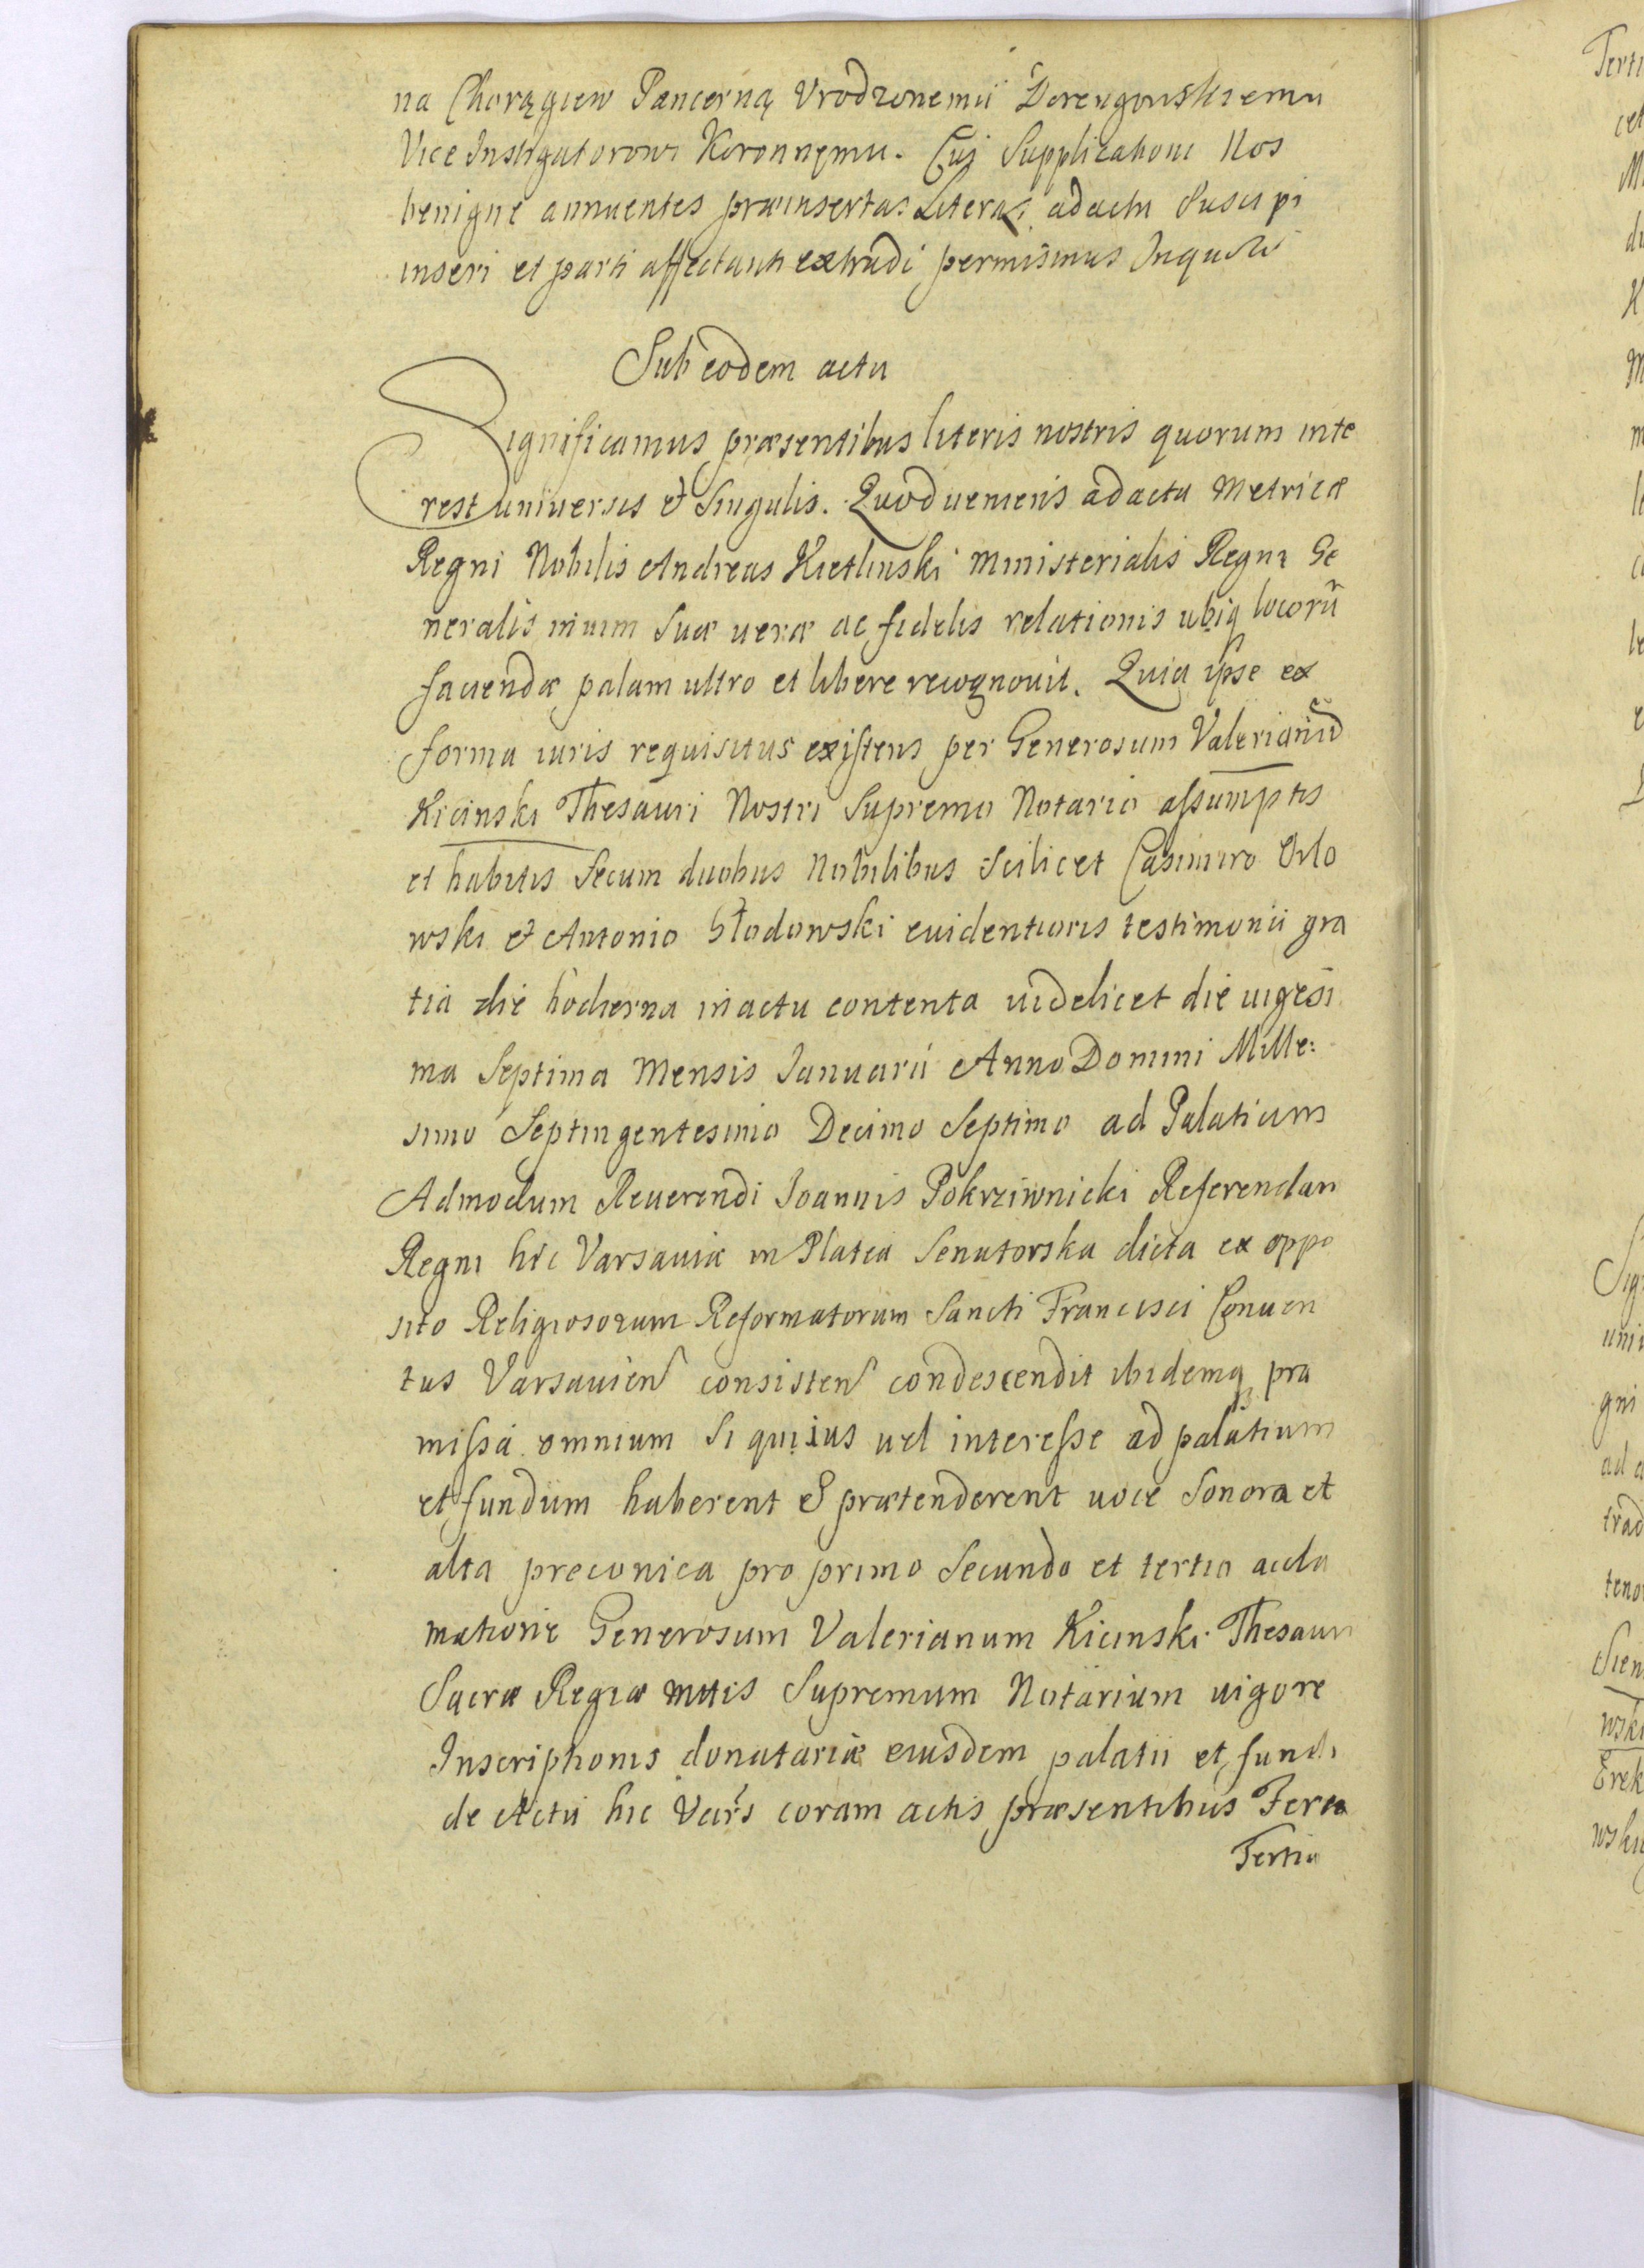 na Chorągiew Pancerną Vrodzonemu Derengowskiemu
Vice Instigatorowi Koronnemu. Cuj Supplicationi Nos
benigne annuentes præinsertas Literas ad acta Suscipi
inseri et parti affectanti extradi permisimus Inquor̄
Sub eodem actu
Significamus præsentibus literis nostris quorum inte
rest universis et Singulis. Quod veniens ad acta Metricæ
Regni Nobilis Andreas Kietlinski Ministerialis Regni Ge
neralis in vim Suæ veræ ac fidelis relationis ubiq locorū
faciendæ palam ultro et libere recognovit. Quia ipse ex
forma iuris requisitus existens per Generosum Valerianū
Kicinski Thesauri Nostri Supremo Notario assumptis
et habitis Secum duobus Nobilibus Scilicet Casimiro Orlo
wski et Antonio Słodowski evidentioris testimonii gra
tia die hodierna in actu contenta videlicet die vigesi
ma Septima Mensis Januarii Anno Domini Mille:
simo Septingentesimo Decimo Septimo ad Palatium
Admodum Reverendi Joannis Pokrziwnicki Referendari
Regni hic Varsaviæ in Platea Senatorska dicta ex oppo
sito Religiosorum Reformatorum Sancti Francisci Conven
tus Varsavien consisten condescendit ibidemq præ
missa omnium Si qui ius vel interesse ad palatium
et fundum haberent et prætenderent voce Sonora et
alta preconica pro primo Secundo et tertio accla
matione Generosum Valerianum Kicinski Thesauri
Sacræ Regiæ Mttis Supremum Notarium vigore
Inscriptionis donatariæ eiusdem palatii et fundi
de Actu hic Vars coram actis præsentibus Feria
Tertia